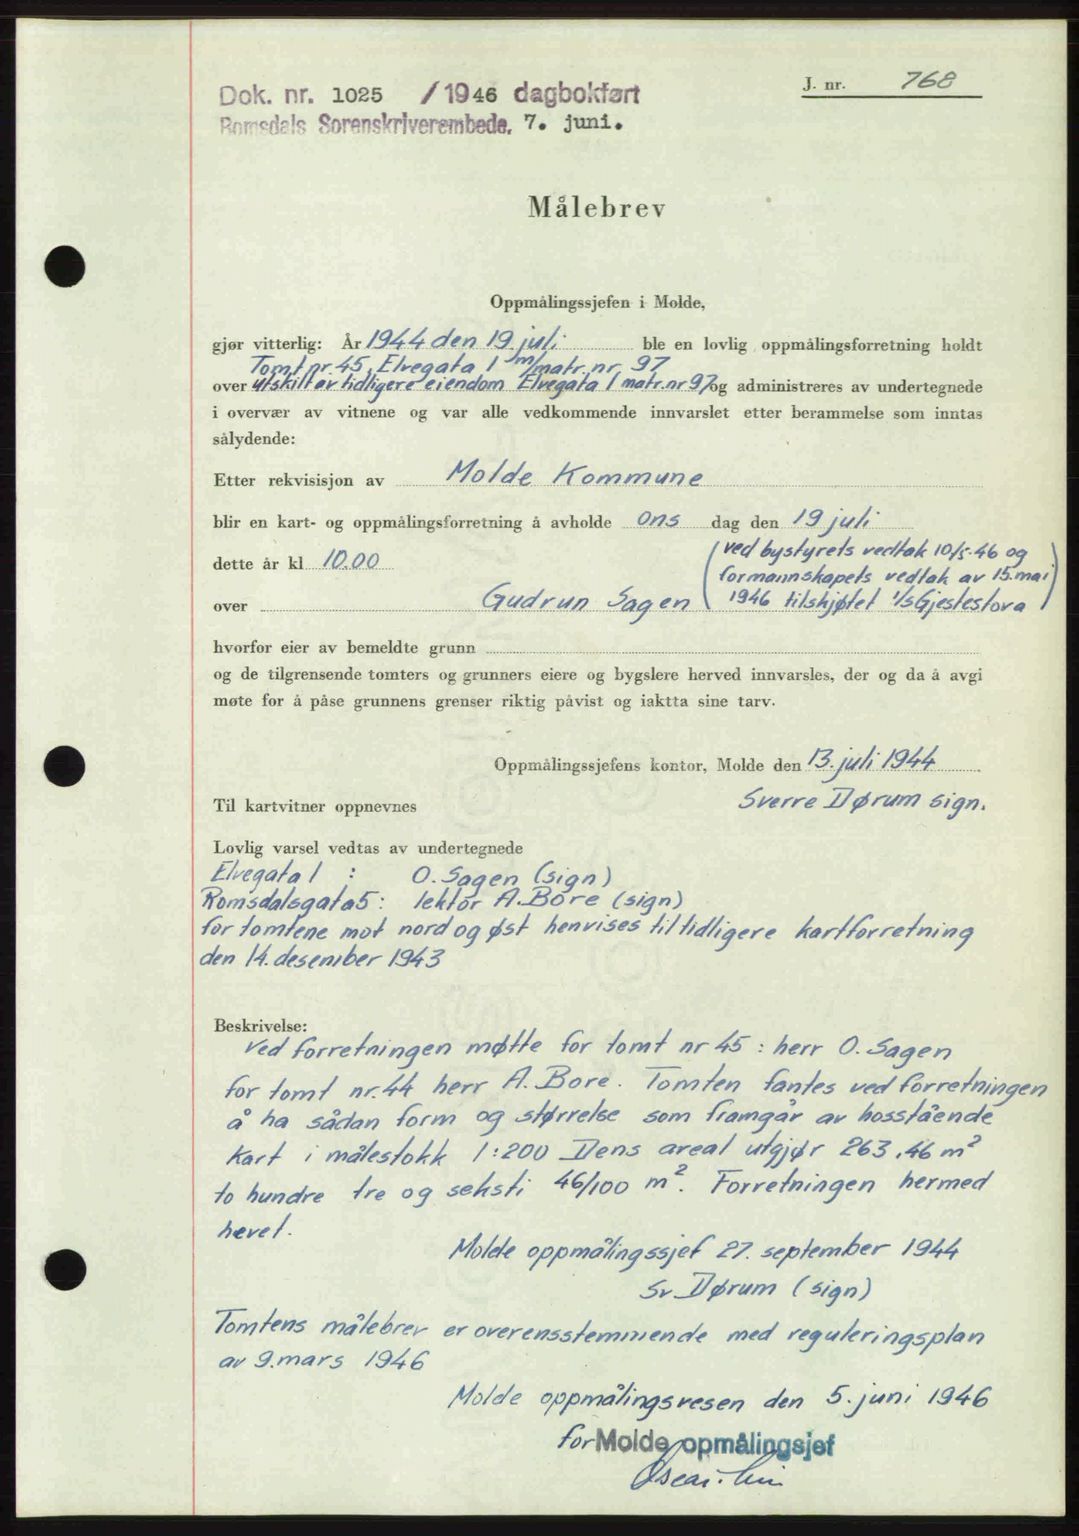 J. nr. 768
Dok. nr. 1025 /1946 dagbokført
Romsdals Sorenskriverembede, 7. juni.
Målebrev
Oppmålingssjefen i Molde,
gjør vitterlig: År 1944 den 19. juli ble en lovlig oppmålingsforretning holdt
Tomt nr. 45, Elvegata 1 m/matr. nr. 97
over utskilt av tidligere eiendom Elvegata 1 matr. nr 97 og administreres av undertegnede
i overvær av vitnene og var alle vedkommende innvarslet etter berammelse som inntas
sålydende:
Etter rekvisisjon av Molde Kommune
blir en kart- og oppmålingsforretning å avholde ons dag den 19 juli
dette år kl 10.00 (ved bystyrets vedtak 10/5-46 og
formannskapets vedtak av 15. mai
over Gudrun Sagen 1946 tilskjøtet I/S Gjestestova)
hvorfor eier av bemeldte grunn
og de tilgrensende tomters og grunners eiere og bygslere herved innvarsles, der og da å avgi
møte for å påse grunnens grenser riktig påvist og iaktta sine tarv.
Oppmålingssjefens kontor, Molde den 13. juli 1944
Til kartvitner oppnevnes Sverre Dørum sign.
Lovlig varsel vedtas av undertegnede
Elvegata 1 : O. Sagen (sign)
Romsdalsgata 5: lektor A. Bore (sign)
for tomtene mot nord og øst henvises til tidligere kartforretning
den 14. desember 1943
Beskrivelse:
Ved forretningen møtte for tomt nr 45 : herr O. Sagen
for tomt nr. 44 herr A. Bore. Tomten fantes ved forretningen
å ha sådan form og størrelse som framgår av hosstående
kart i målestokk 1:200 Dens areal utgjør 263,46 m²
to hundre tre og seksti 46/100 m². Forretningen hermed
hevet.
Molde oppmålingssjef 27. september 1944
Sv. Dørum (sign)
Tomtens målebrev er overensstemmende med reguleringsplan
av 9. mars 1946
Molde oppmålingsvesen den 5. juni 1946
for Molde opmålingsjef